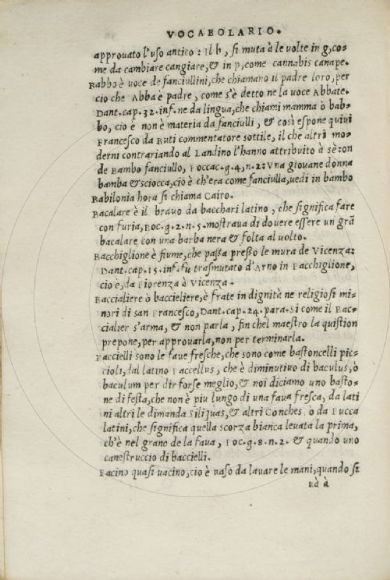 VOCABOLARIO.
approuato l'uso antico: Il b, si muta à le volte in g, co=
me da cambiare cangiare, & in p, come cannabis canape.
Babbo è voce de fanciullini, che chiamano il padre loro, per
cio che Abba è padre, come s'è detto ne la voce Abbate.
Dant. cap. 32. inf. ne da lingua, che chiami mamma ò bab=
bo, cio è non è materia da fanciulli, & così espone quiui
Francesco da Buti commentatore sottile, il che altri mo=
derni contrariando al Landino l'hanno attribuito à sè: on
de Bambo fanciullo, Boccac. g. 4, n. 2: Vna giouane donna
bamba & sciocca, cio è ch'era come fanciulla, uedi in bambo
Babilonia hora si chiama Cairo.
Bacalare è il brauo da bacchari latino, che significa fare
con furia, Boc. g. 2. n. 5. mostraua di douere essere un grã
bacalare con una barba nera & folta al volto.
Bacchiglione è fiume, che passa presso le mura de Vicenza:
Dant. cap. 15. inf. fù trasmutato d'Arno in Bacchiglione,
cio è, da Fiorenza à Vicenza.
Baccialiere ò baccieliere, è frate in dignitè ne religiosi mi=
nori di san Francesco, Dant. cap. 24. para. Si come il Bac=
cialier s'arma, & non parla, fin chel maestro la quistion
prepone, per approuarla, non per terminarla.
Baccielli sono le faue fresche, che sono come bastoncelli pic=
cioli, dal latino Baccellus, che è diminutiuo di baculus, ò
baculum per dir forse meglio, & noi diciamo uno basto=
ne di festa, che non è piu lungo di una faua fresca, da lati
ni altri le dimanda Siliquas, & altri Conches. ò da Bucca
latini, che significa quella scorza bianca leuata la prima,
ch'è nel grano de la faua, Boc. g. 8. n. 2. & quando uno
canestruccio di baccielli.
Bacino quasi uacino, cio è uaso da lauare le mani, quando si
uà à